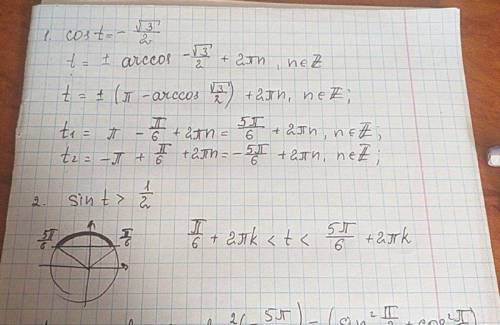 1. cos t = - √3/2
t = ± arccos -√3/2 + 2πn, n∈Z
t = ± (π - arccos √3/2) + 2πn, n∈Z;
t₁ = π - π/6 + 2πn = 5π/6 + 2πn, n∈Z;
t₂ = -π + π/6 + 2πn = -5π/6 + 2πn, n∈Z;
2. sin t > 1/2
5π/6 π/6 π/6 + 2πk < t < 5π/6 + 2πk